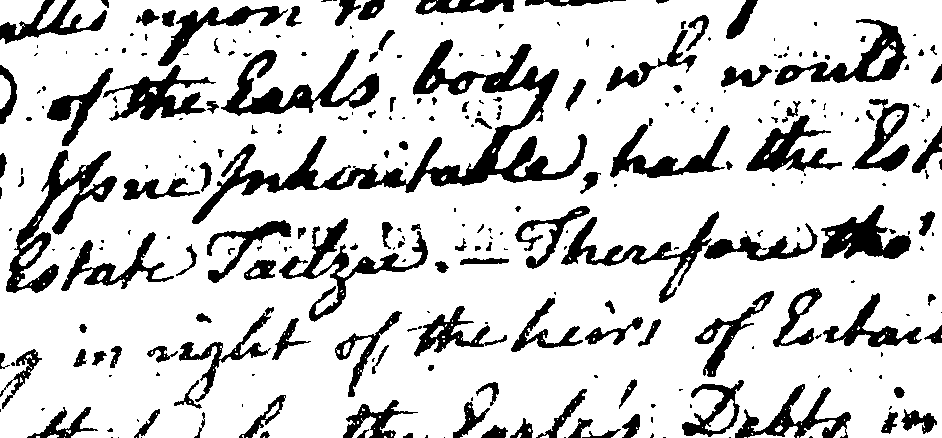 upon to
of the Earl's body, wh. would
Issue Inheritable, had the Est
Estate Tailzie. — Therefore tho'
in right of the heirs of Entail
the Earle's Debts in